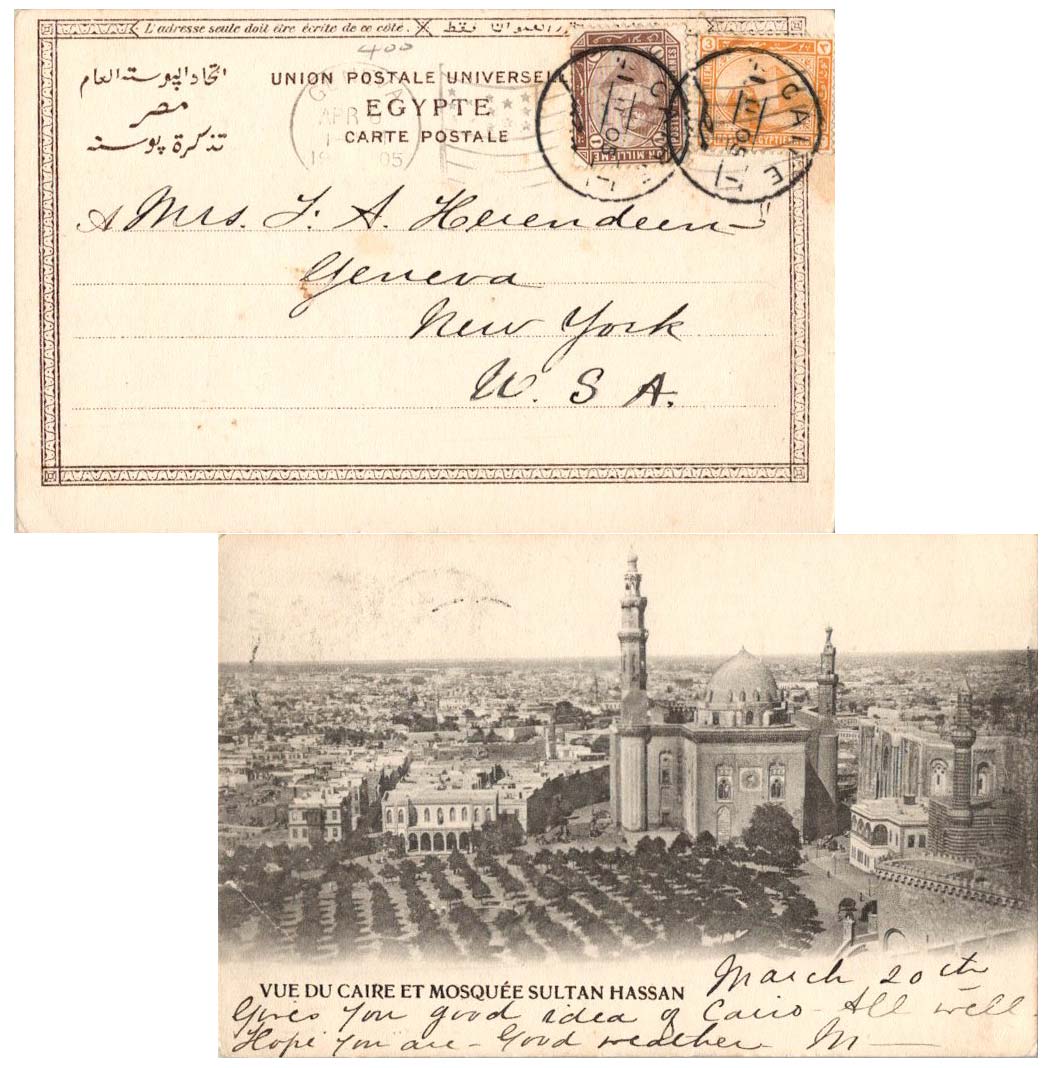 L'adresse seule doit être écrite de ce côté.
400
UNION POSTALE UNIVERSELL
EGYPTE
CARTE POSTALE
اتحاد البوسته العام
مصر
تذكرة بوسته
APR
05
CAIRE
CAIRE
1
MILLIEME
3
Mrs. F. A. Herendeen
Geneva
New York
U. S. A.
VUE DU CAIRE ET MOSQUÉE SULTAN HASSAN
March 20th
Gives you good idea of Cairo - All well.
Hope you are - Good weather M